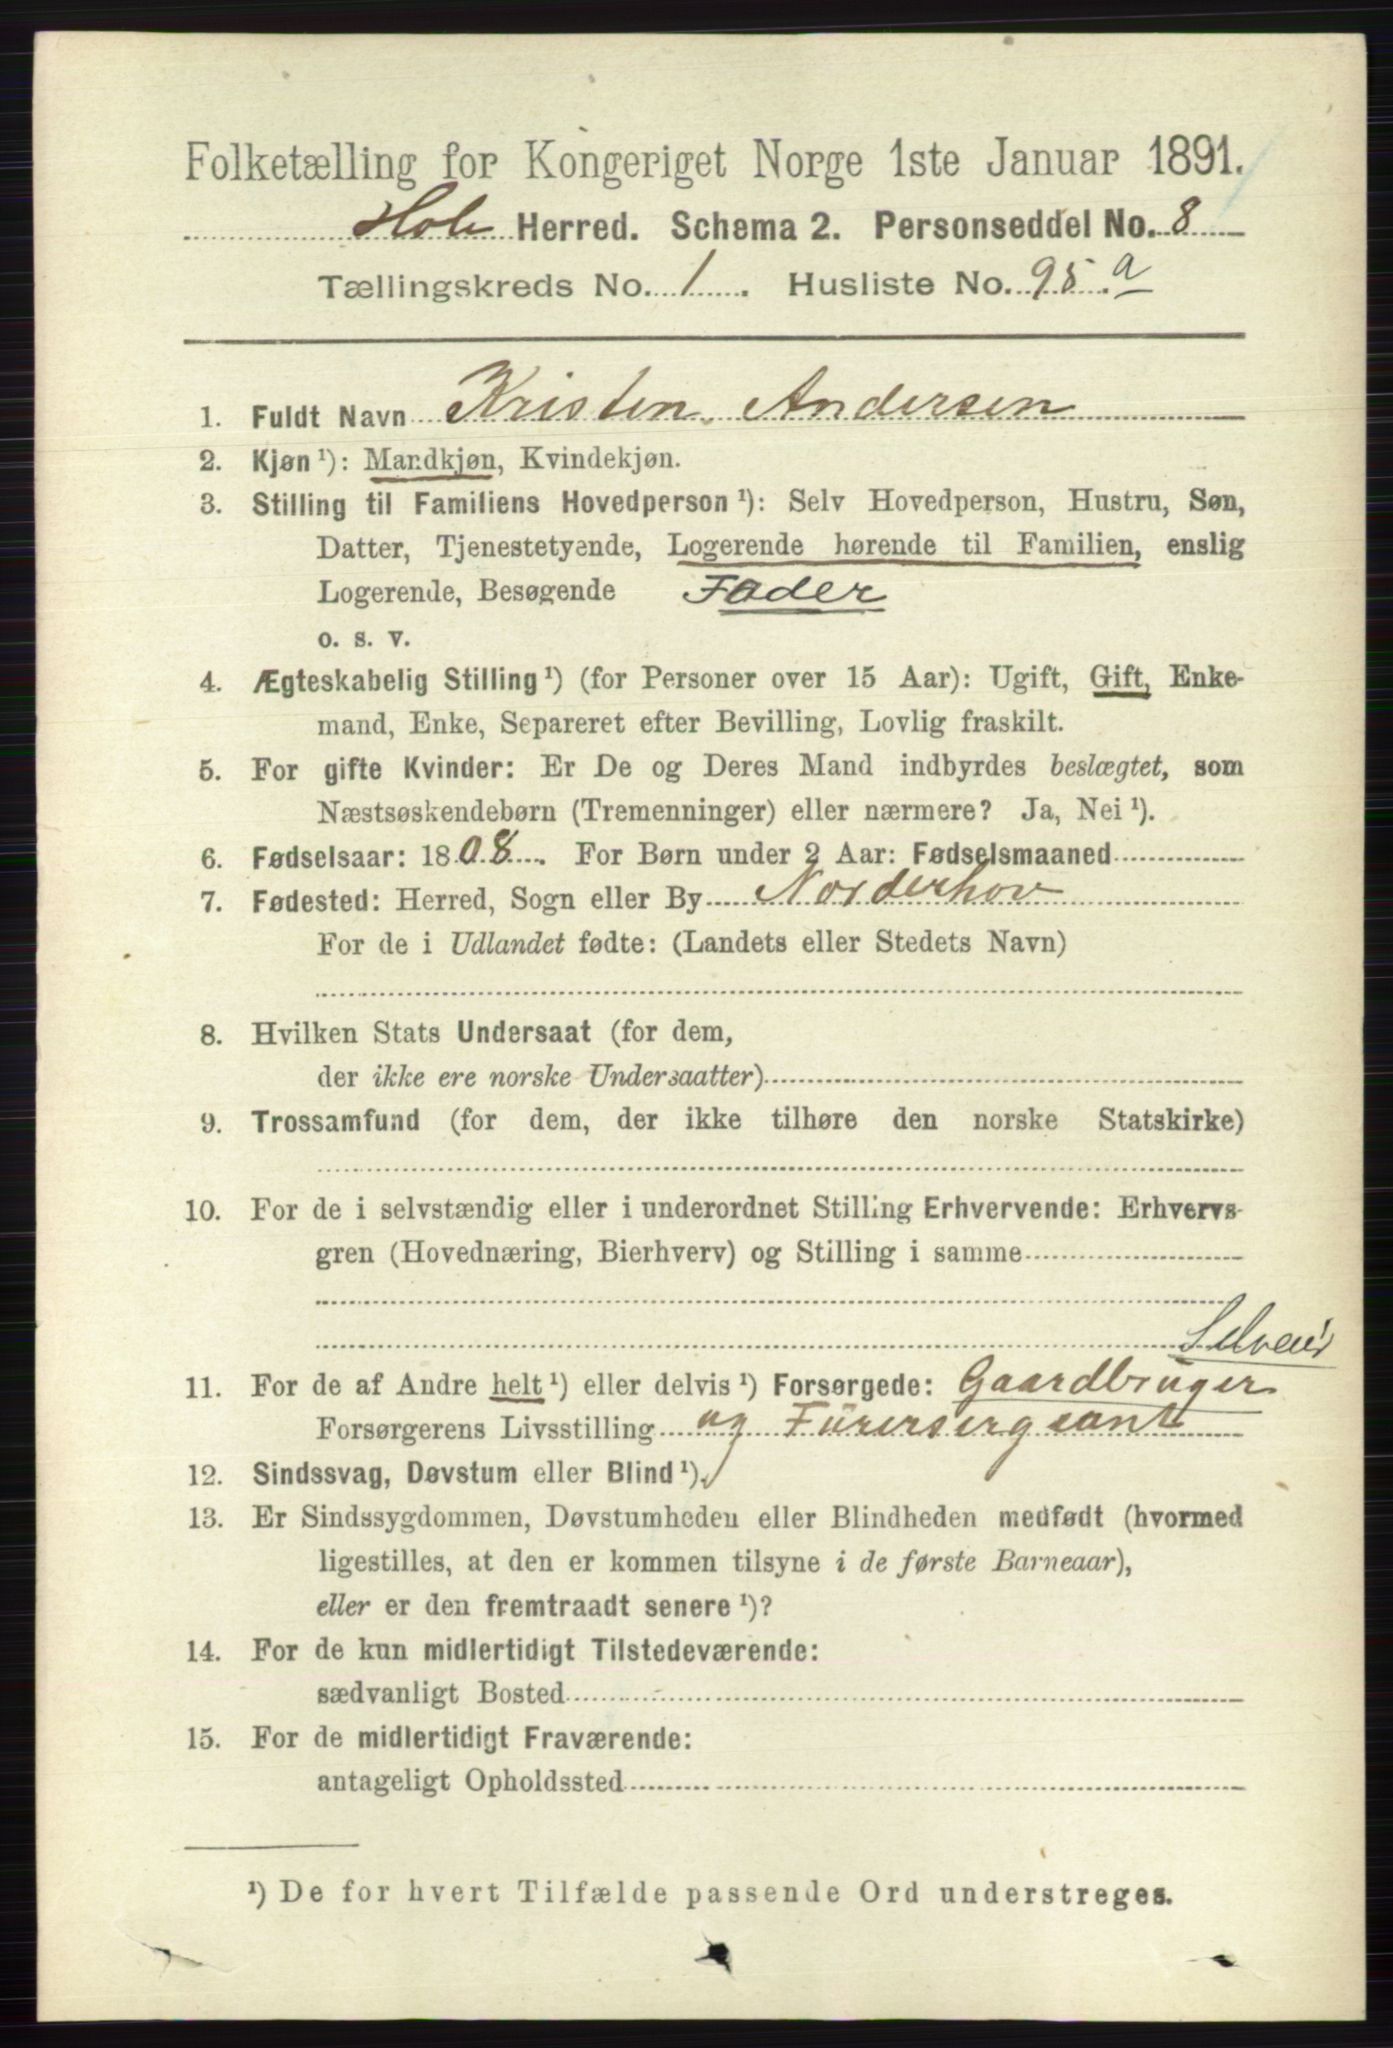 Folketælling for Kongeriget Norge 1ste Januar 1891.
Hole Herred. Schema 2. Personseddel No. 8
Tællingskreds No. 1. Husliste No. 95.a
1. Fuldt Navn Kristen Andersen
2. Kjøn ¹): Mandkjøn, Kvindekjøn.
3. Stilling til Familiens Hovedperson ¹): Selv Hovedperson, Hustru, Søn,
Datter, Tjenestetyende, Logerende hørende til Familien, enslig
Logerende, Besøgende Fader
o. s. v.
4. Ægteskabelig Stilling ¹) (for Personer over 15 Aar): Ugift, Gift, Enke-
mand, Enke, Separeret efter Bevilling, Lovlig fraskilt.
5. For gifte Kvinder: Er De og Deres Mand indbyrdes beslægtet, som
Næstsøskendebørn (Tremenninger) eller nærmere? Ja, Nei ¹).
6. Fødselsaar: 1808. For Børn under 2 Aar: Fødselsmaaned
7. Fødested: Herred, Sogn eller By Norderhov
For de i Udlandet fødte: (Landets eller Stedets Navn)
8. Hvilken Stats Undersaat (for dem,
der ikke ere norske Undersaatter)
9. Trossamfund (for dem, der ikke tilhøre den norske Statskirke)
10. For de i selvstændig eller i underordnet Stilling Erhvervende: Erhvervs-
gren (Hovednæring, Bierhverv) og Stilling i samme
Selveier
11. For de af Andre helt ¹) eller delvis ¹) Forsørgede: Gaardbruger
Forsørgerens Livsstilling og Fürersergeant
12. Sindssvag, Døvstum eller Blind ¹).
13. Er Sindssygdommen, Døvstumheden eller Blindheden medfødt (hvormed
ligestilles, at den er kommen tilsyne i de første Barneaar),
eller er den fremtraadt senere ¹)?
14. For de kun midlertidigt Tilstedeværende:
sædvanligt Bosted
15. For de midlertidigt Fraværende:
antageligt Opholdssted
¹) De for hvert Tilfælde passende Ord understreges.